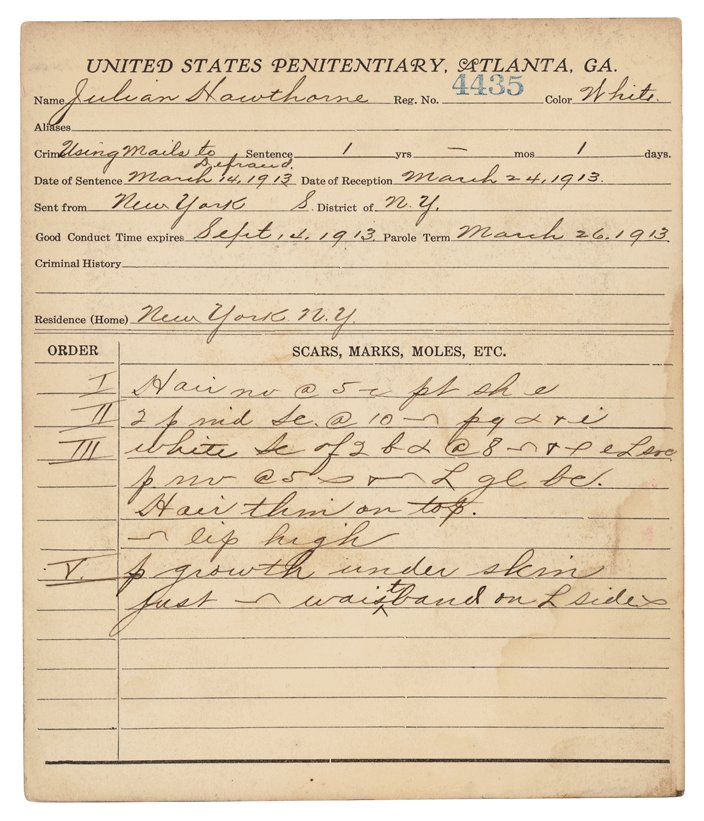 UNITED STATES PENITENTIARY, ATLANTA, GA.
Name Julian Hawthorne Reg. No. 4435 Color White.
Aliases
Crime Using Mails to Defraud. Sentence 1 yrs — mos 1 days.
Date of Sentence March 14, 1913 Date of Reception March 24, 1913.
Sent from New York S. District of N.Y.
Good Conduct Time expires Sept 14, 1913. Parole Term March 26, 1913.
Criminal History
Residence (Home) New York. N.Y.
ORDER SCARS, MARKS, MOLES, ETC.
I Hair nv @ 5 pt sh e
II 2 p mid Sc. @ 10 pg & r i
III white Sc of 2 b & @ 8 r e L
p nv @ 5 r L gl bc.
Hair thin on top.
lip high
V. p growth under skin
just waistband on L side